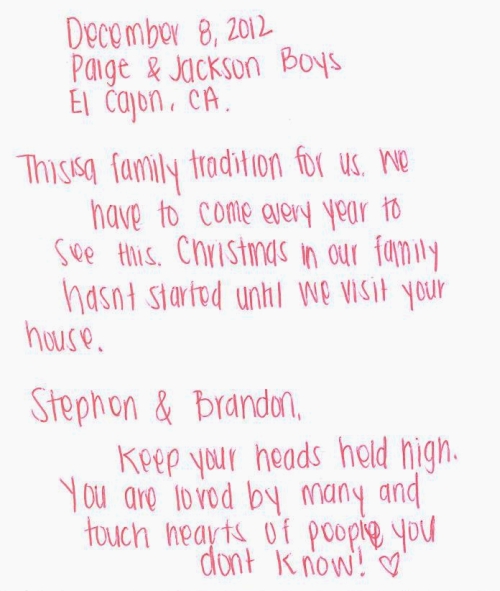 December 8, 2012
Paige & Jackson Boys
El Cajon, CA.
This is a family tradition for us. We
have to come every year to
see this. Christmas in our family
hasnt started until we visit your
house.
Stephon & Brandon,
Keep your heads held high.
You are loved by many and
touch hearts of people you
dont know! ♡